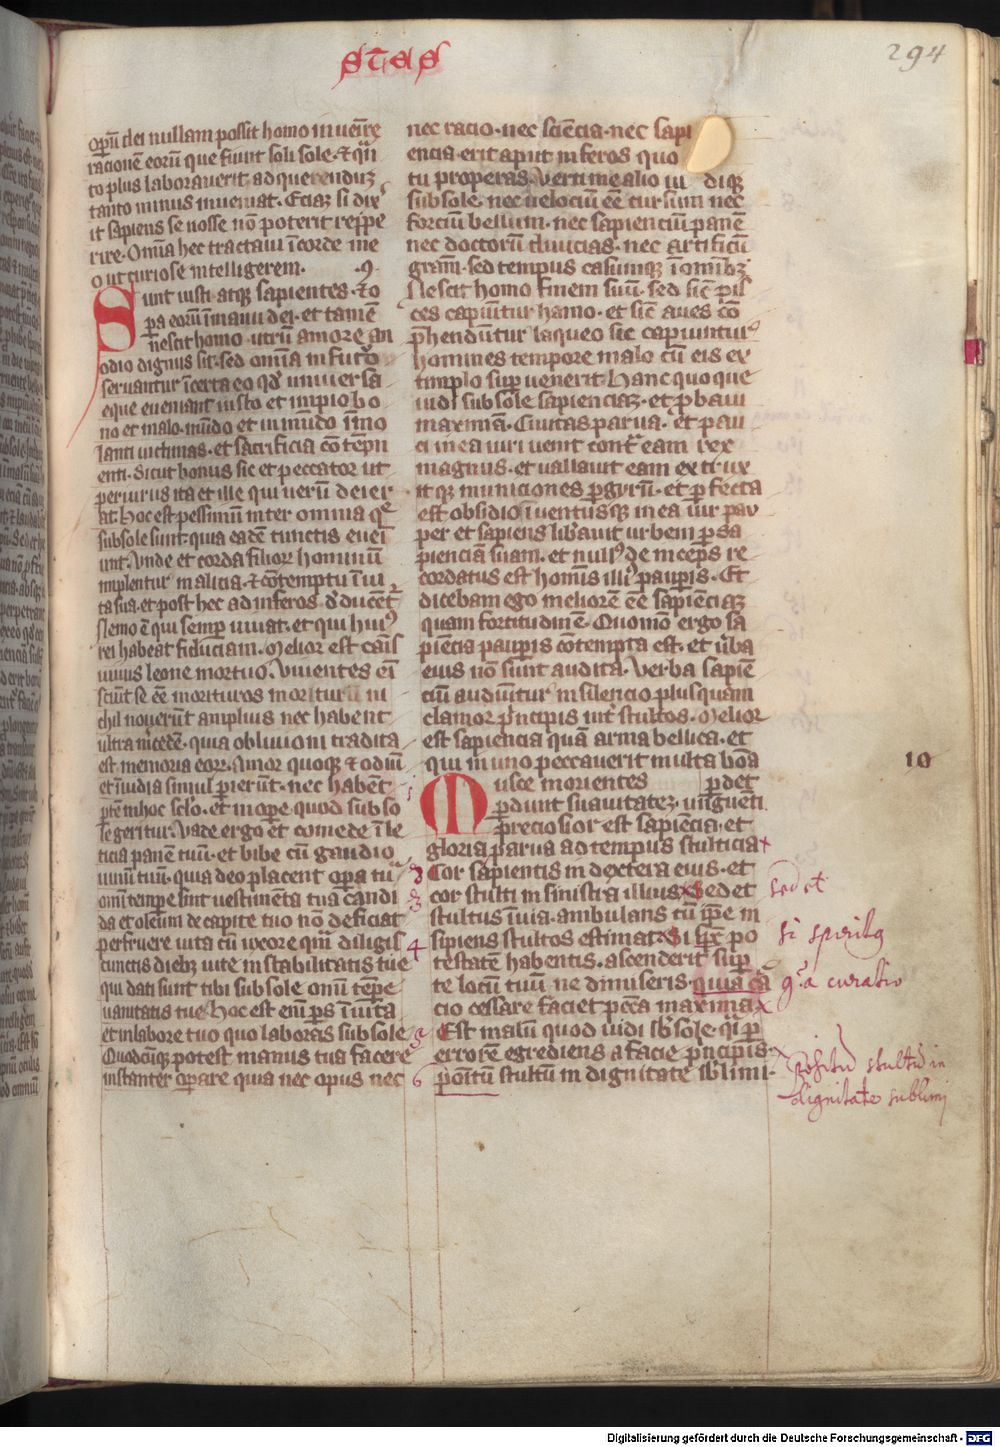 STES
294
op̄m dei nullam possit homo inuenire
racionē eorū que fiunt sub sole · ⁊ qūn
to plus laborauerit ad querenduꝫ
tanto minus inueniat · Eciaꝫ si dix̄
it sapiens se nosse nō poterit repꝑe
rire · Omīa hec tractaui ī corde me
o ut curiose intelligerem · ·9·
Sunt iusti atqꝫ sapientes · ⁊ o
pa eorū ī manu dei · et tamē
nescit homo utrū amore an
odio dignus sit · sed omīa in futuro
seruantur īcerta eo qđ uniuersa
eque eueniant iusto et impio bo
no et malo · mūdo et in mūdo · īmo
lanti uictimas · et sacrificia cōtēpn
enti · Sicut bonus sic et peccator ut
periurus ita et ille qui uerū deier
at · Hoc est pessimū inter omnia qͤ
sub sole sunt · quia eadē cunctis eueī
unt · Vnde et corda filiorꝫ hominū
implentur malicia · ⁊ cōtemptu ī ui
ta sua · et post hec ad inferos dꝰducent̄
Nemo ē qui semꝑ uiuat · et qui huiꝰ
rei habeat fiduciam · Melior est canis
uiuus leone mortuo · Viuentes eī
sciūt se eē morituros mortui ni
chil nouerūt amplius nec habent
ultra mercedē · quia obliuioni tradita
est memoria eorꝫ · Amor quoqꝫ ⁊ odiū
et inuidia simul ꝑierūt · nec habēt
ꝑtē in hoc sc̄lo · et in oꝑe quod sub so
le geritur · Vade ergo et comede ī le
ticia panē tuū · et bibe cū gaudio
uinū tuū · quia deo placent oꝑa tua
omī temꝑe sint uestimēta tua candi
da et oleum de capite tuo nō deficiat
perfruere uita cū uxore quā diligis
cunctis diebꝫ uite instabilitatis tue
qui dati sunt tibi sub sole omī tēꝑe
uanitatis tue hoc est enī ꝑs ī uita
et in labore tuo quo laboras sub sole
Quodcūqꝫ potest manus tua facere
instanter oꝑare quia nec opus nec
nec racio · nec sciēcia · nec sapi
encia erit aput inferos quo
tu properas · Verti me alio ui diqꝫ
sub sole · nec uelociū eē cursum nec
forciū bellum · nec sapienciū panē
nec doctorū diuicias · nec artificū
grām · sed tempus casumqꝫ ī omībꝫ
Nescit homo finem suū · sed sic̄ pis
ces capiūtur hamo · et sic̄ aues cō
p̄hendūtur laqueo sic capiuntur
homines tempore malo cū eis ex
timplo suꝑuenerit · Hanc quoque
uidi sub sole sapienciaꝫ · et ꝓbaui
maximā · Ciuitas parua · et pau
ci in ea uiri uenit cont̄ eam rex
magnus · et uallauit eam extrux
itqꝫ municiones ꝑ gyrū · et ꝑfecta
est obsidio īuentusqꝫ in ea uir pau
per et sapiens lib̄auit urbem ꝑ sa
pienciā suam · et nullꝰ deinceps re
cordatus est hominis illiꝰ pauꝑis · Et
dicebam ego meliorē eē sapienciaꝫ
quam fortitudinē · Quomō ergo sa
piēcia pauꝑis cōtempta est · et uerba
eius nō sunt audita · Verba sapiē
ciū audiūtur in silencio plusquam
clamor p̄ncipis int̄ stultos · Melior
est sapiencia quā arma bellica · et
qui in uno peccauerit multa bona
Musce morientes ꝑdet 10
ꝑdunt suauitateꝫ unguēti
preciosior est sapiēcia · et
gloria parua ad tempus stulticia
Cor sapientis in dextera eius · et
cor stulti in sinistra illius Sed et
stultus ī uia · ambulans cū ip̄e in
sipiens stultos estimat Si spc̄ po
testatē habentis · ascenderit suꝑ
te locū tuū ne dimiseris · quia cā
cio cessare faciet pcc̄a maxima
Est malū quod uidi sb̄ sole · qͥ ꝑ
errorē egrediens a facie p̄ncipis ·
poītū stultū in dignitate sb̄limi ·
3
4
5
6
sed et
si spiritꝰ
qͥa curatio
positū stultū in
dignitate sublimi
Digitalisierung gefördert durch die Deutsche Forschungsgemeinschaft - DFG